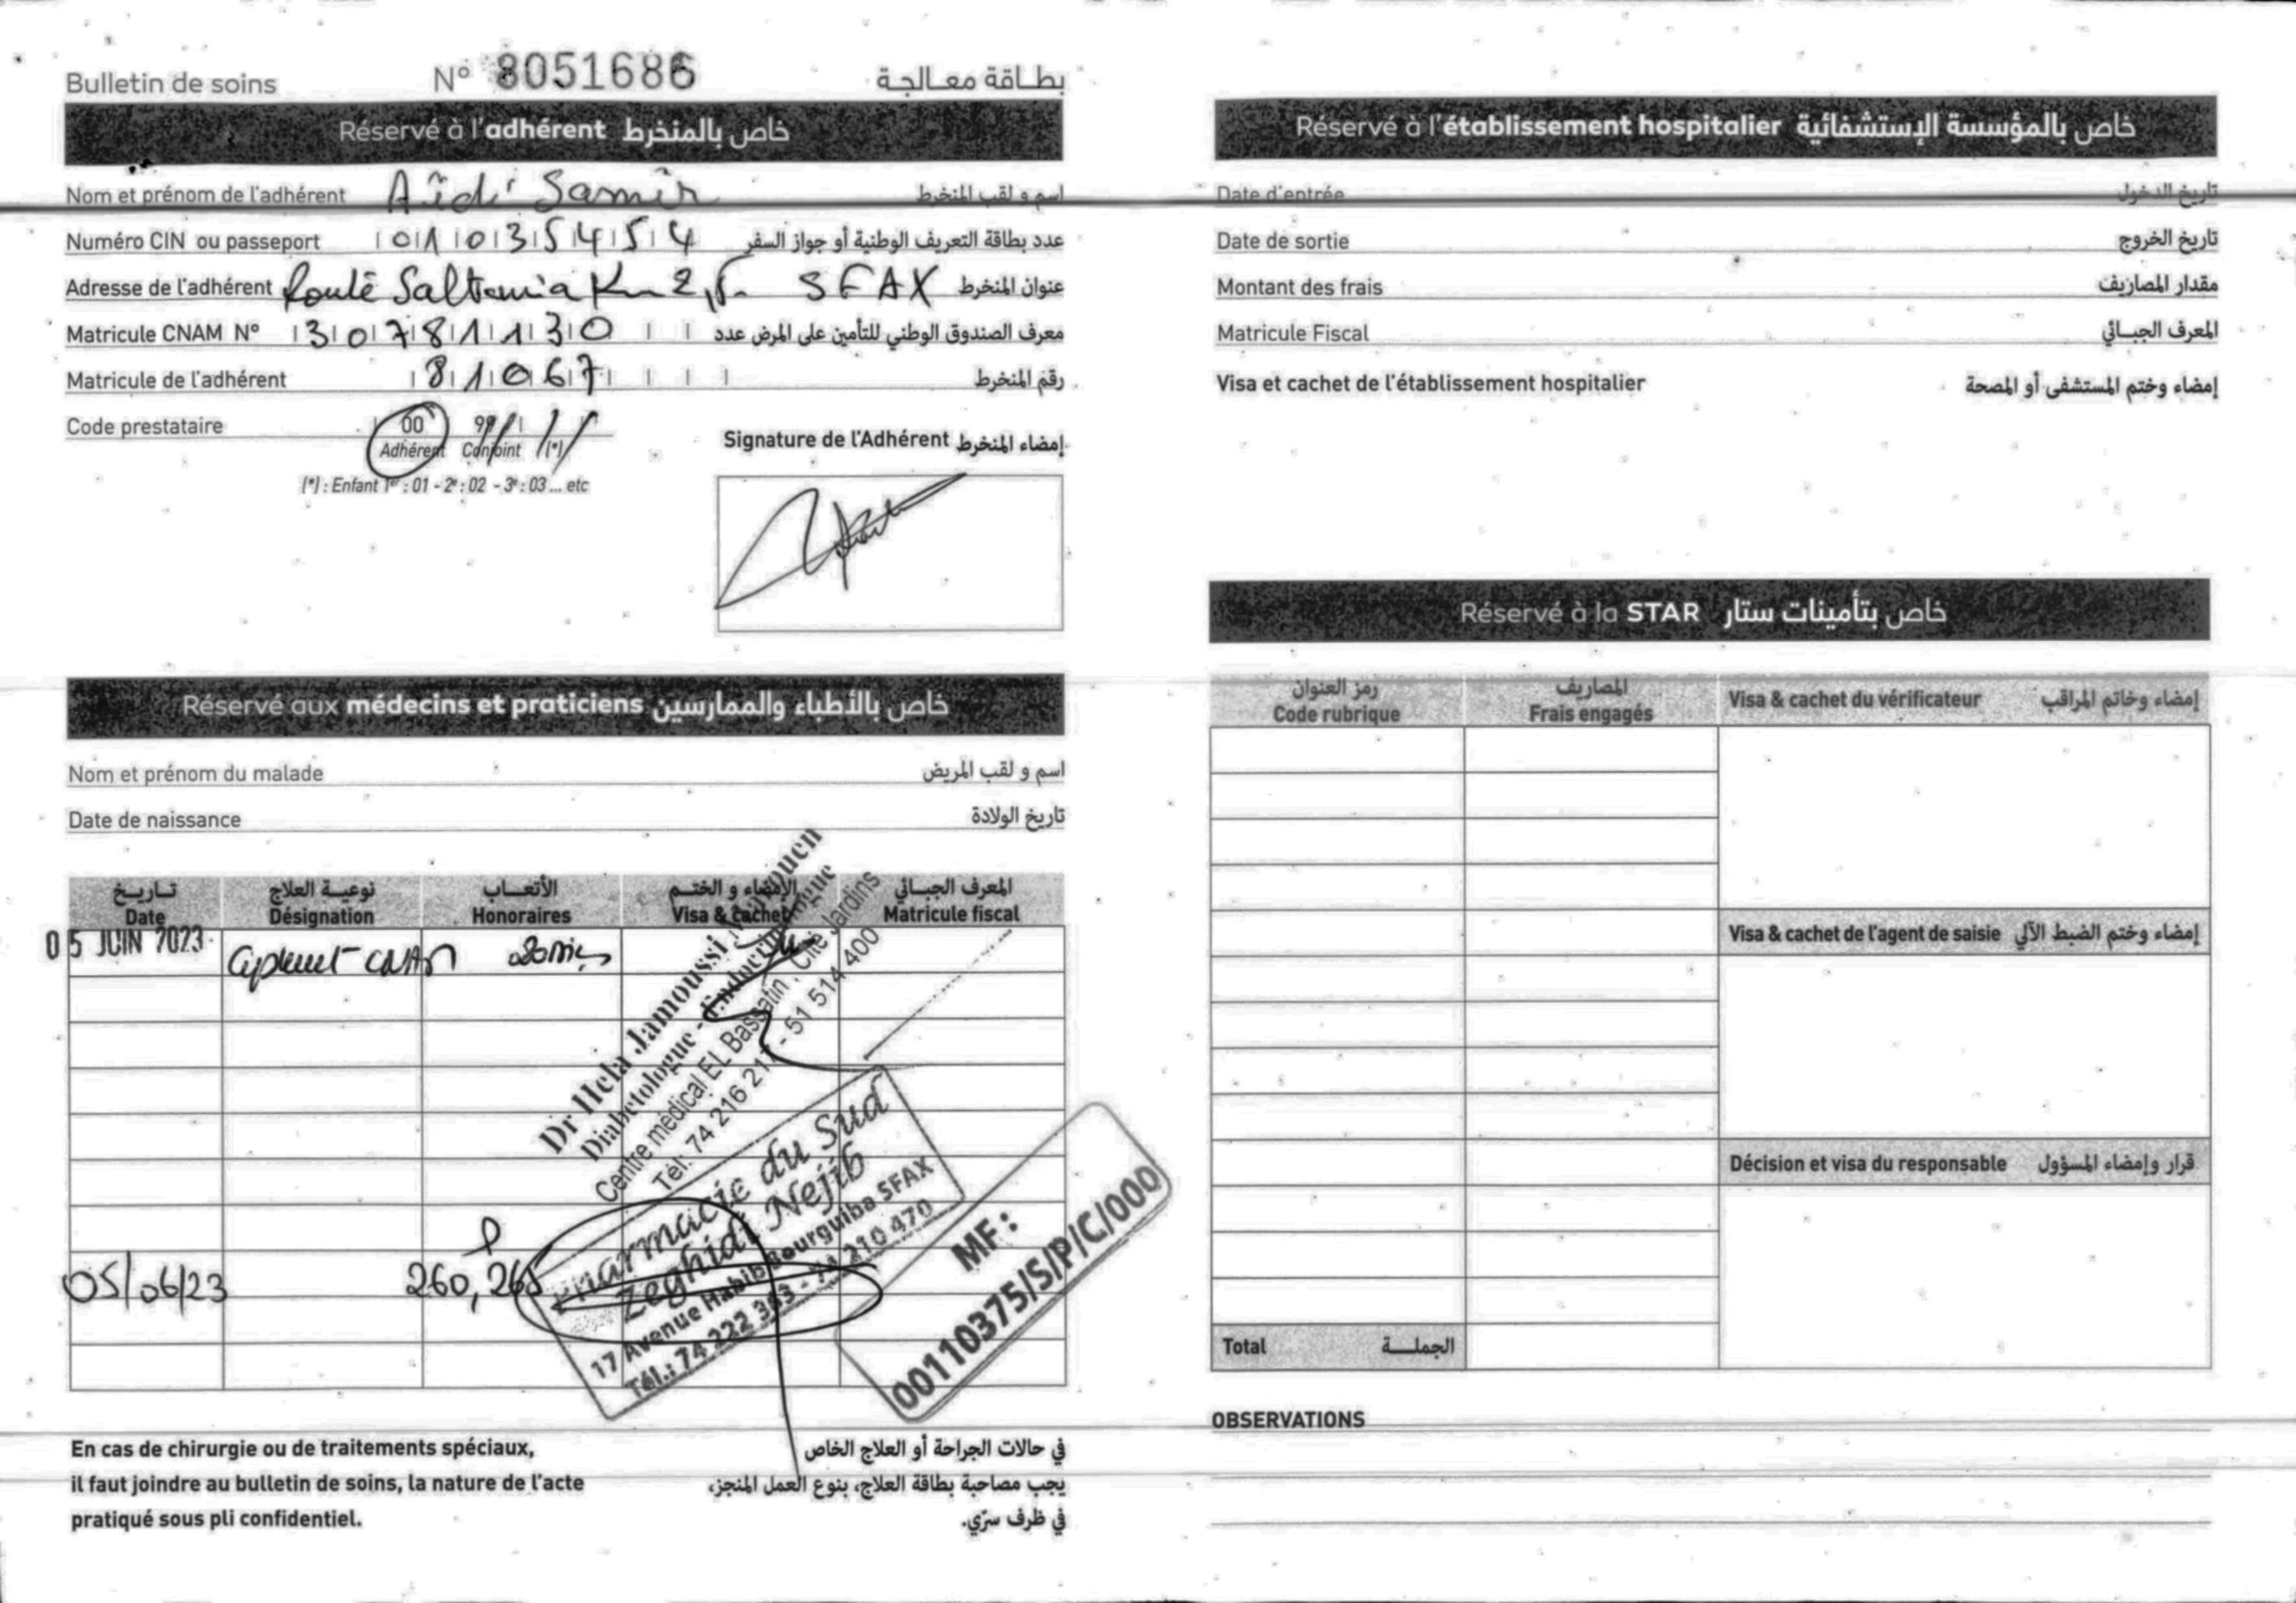 Bulletin de soins N° 8051686 بطاقة معالجة
Réservé à l'adhérent خاص بالمنخرط
Nom et prénom de l'adhérent Aïdi Samir اسم و لقب المنخرط
Numéro CIN ou passeport 01035454 عدد بطاقة التعريف الوطنية أو جواز السفر
Adresse de l'adhérent Route Saltania Km 2,5 SFAX عنوان المنخرط
Matricule CNAM N° 307811130 معرف الصندوق الوطني للتأمين على المرض عدد
Matricule de l'adhérent 81067 رقم المنخرط
Code prestataire 00 99
Adhérent Conjoint (*)
(*) : Enfant 1er : 01 - 2e : 02 - 3e : 03 ... etc
Signature de l'Adhérent إمضاء المنخرط
Réservé aux médecins et praticiens خاص بالأطباء والممارسين
Nom et prénom du malade اسم و لقب المريض
Date de naissance تاريخ الولادة
تاريخ نوعية العلاج الأتعاب الإمضاء و الختم المعرف الجبائي
Date Désignation Honoraires Visa & cachet Matricule fiscal
05 JUIN 2023 CNAM
Dr Hela Jamoussi
Diabetologue - Endocrinologue
Centre médical EL Bassatin, Cité Jardins
Tél: 74 216 217 - 51 514 400
05/06/23 260,265
Pharmacie du Sud
Zeghidi Nejib
17 Avenue Habib Bourguiba SFAX
Tél.: 74 222 363 - 74 210 470
MF :
00110375/S/P/C/000
En cas de chirurgie ou de traitements spéciaux,
il faut joindre au bulletin de soins, la nature de l'acte
pratiqué sous pli confidentiel.
في حالات الجراحة أو العلاج الخاص
يجب مصاحبة بطاقة العلاج، بنوع العمل المنجز،
في ظرف سرّي.
Réservé à l'établissement hospitalier خاص بالمؤسسة الإستشفائية
Date d'entrée تاريخ الدخول
Date de sortie تاريخ الخروج
Montant des frais مقدار المصاريف
Matricule Fiscal المعرف الجبائي
Visa et cachet de l'établissement hospitalier إمضاء وختم المستشفى أو المصحة
Réservé à la STAR خاص بتأمينات ستار
رمز العنوان المصاريف
Code rubrique Frais engagés Visa & cachet du vérificateur إمضاء وخاتم المراقب
Visa & cachet de l'agent de saisie إمضاء وختم الضبط الآلي
Décision et visa du responsable قرار وإمضاء المسؤول
Total الجملة
OBSERVATIONS